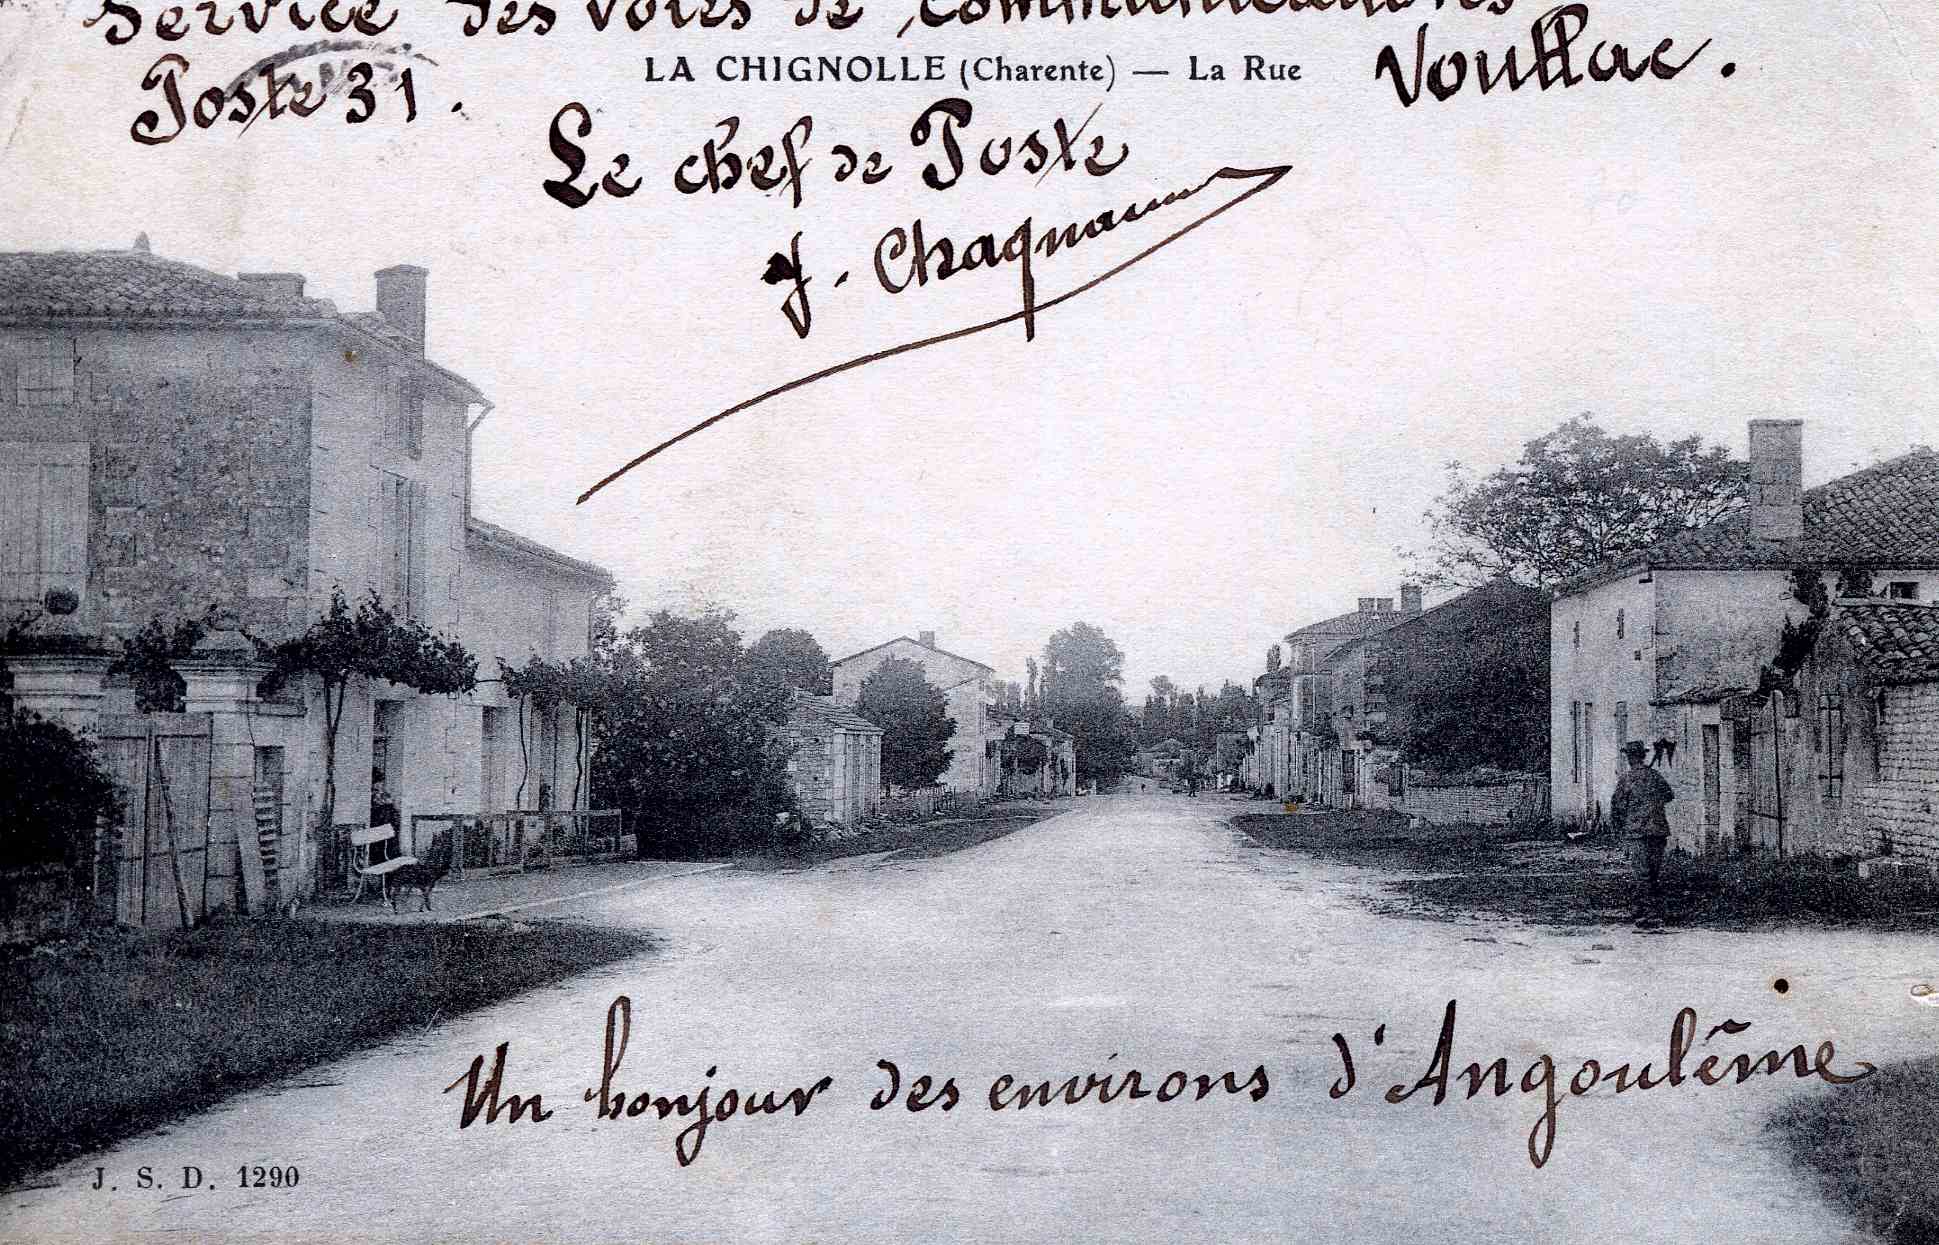 Service des voies de communications
LA CHIGNOLLE (Charente) — La Rue
Poste 31.
Voullac.
Le chef de Poste
J. Chaqnaum
Un bonjour des environs d'Angoulême
J. S. D. 1290